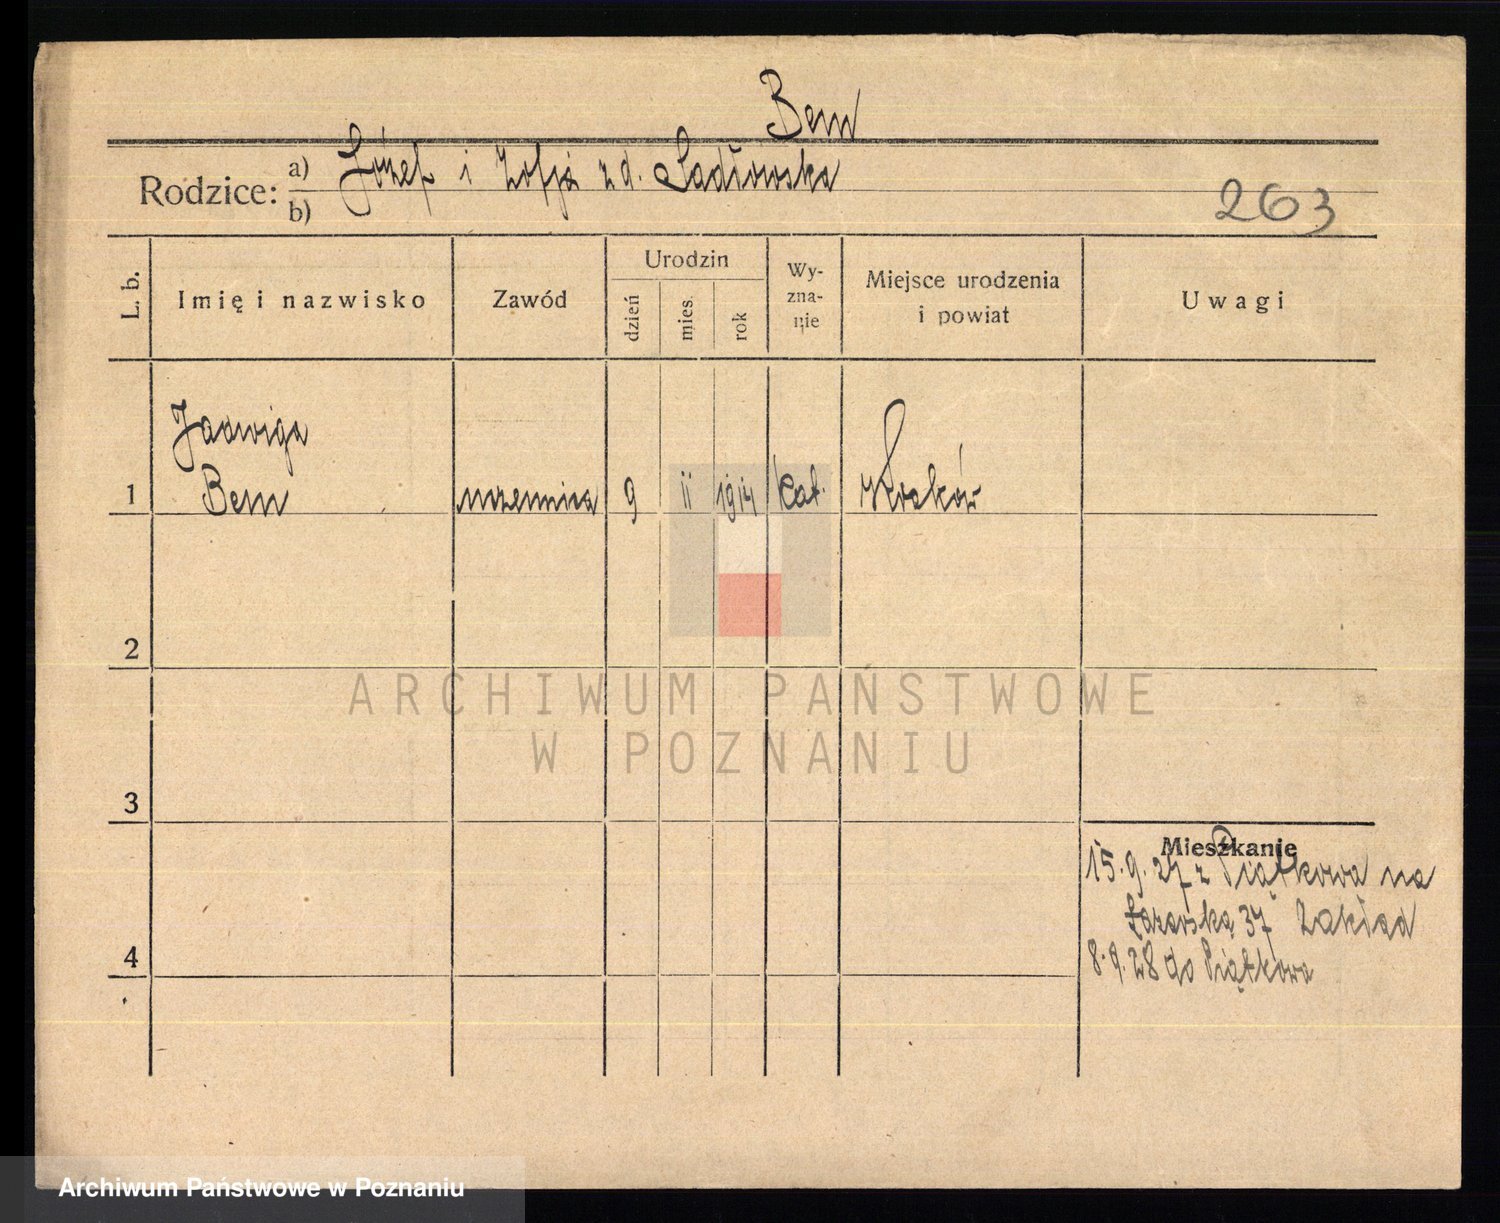 Bem
Rodzice: a) Józef i Zofja z d. Sadłowska
b)
263
L. b.
Imię i nazwisko
Zawód
Urodzin
dzień
mies.
rok
Wy-
zna-
nie
Miejsce urodzenia
i powiat
Uwagi
Jadwiga
1 Bem uczennica 9 II 1914 kat. Kraków
2
ARCHIWUM PAŃSTWOWE
W POZNANIU
3
Mieszkanie
15.9.27 z Piątkowa na
Łazarską 37 Zakład
4
8.9.28 do Piątkowa
Archiwum Państwowe w Poznaniu